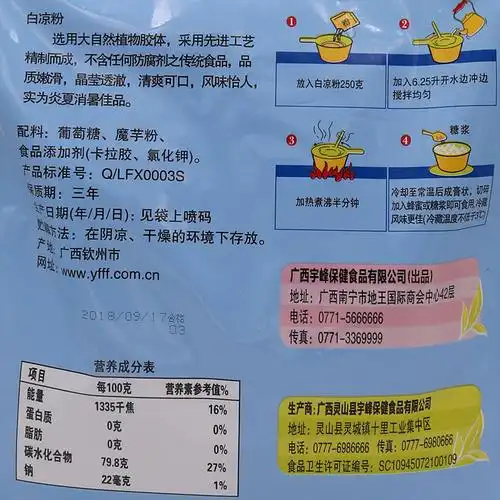 白凉粉
选用大自然植物胶体，采用先进工艺
精制而成，不含任何防腐剂之传统食品，品
质嫩滑，晶莹透澈，清爽可口，风味怡人，
实为炎夏消暑佳品。
配料：葡萄糖、魔芋粉、
食品添加剂(卡拉胶、氯化钾)。
产品标准号：Q/LFX0003S
保质期：三年
生产日期(年/月/日)：见袋上喷码
贮藏方法：在阴凉、干燥的环境下存放。
产地：广西钦州市
网址：www.yfff.com.cn
2018/09/17合格
03
营养成分表
项目 每100克 营养素参考值%
能量 1335千焦 16%
蛋白质 0克 0%
脂肪 0克 0%
碳水化合物 79.8克 27%
钠 22毫克 1%
1
粉
放入白凉粉250克
2
加入6.25升开水边冲边
搅拌均匀
3
加热煮沸半分钟
4
糖浆
冷却至常温后成膏状，切粒
加入蜂蜜或糖浆即可食用，冷藏
风味更佳(冷藏温度不低于3℃)
广西宇峰保健食品有限公司(出品)
地址：广西南宁市地王国际商会中心42层
电话：0771-5666666
传真：0771-3369999
生产商：广西灵山县宇峰保健食品有限公司
地址：灵山县灵城镇十里工业集中区
电话：0777-6986666 传真：0777-6980666
食品卫生许可证编号：SC10945072100109